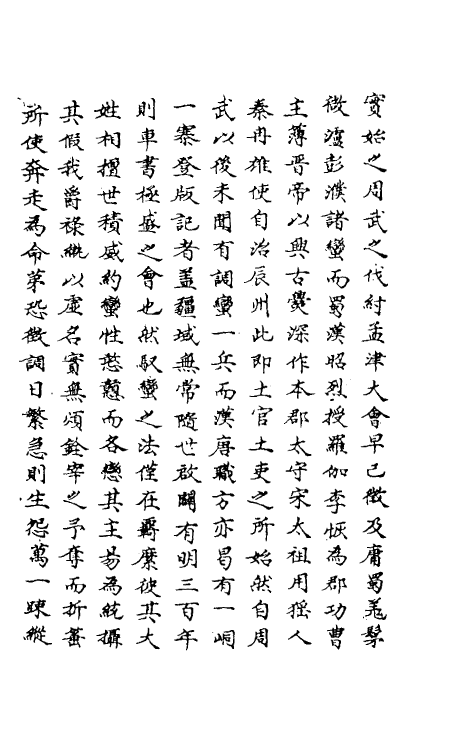 實始之周武之伐紂孟津大會早已徵及庸蜀羌髳
微瀘彭濮諸蠻而蜀漢昭烈授羅伽李恢為郡功曹
主薄晉帝以興古爨深作本郡太守宋太祖用猺人
秦冉雄使自治辰州此即土官土吏之所始然自周
武以後未聞有調蠻一兵而漢唐職方亦曷有一峒
一寨登版記者蓋疆域無常隨世啟闢有明三百年
則車書極盛之會也然馭蠻之法僅在羈縻彼其大
姓相擅世積威約蠻性憨戇而各戀其主易為統攝
其假我爵祿紙以虛名實無頒銓宰之予奪而折蓄
所使奔走為命第恐徵調日繁急則生怨萬一踈縱